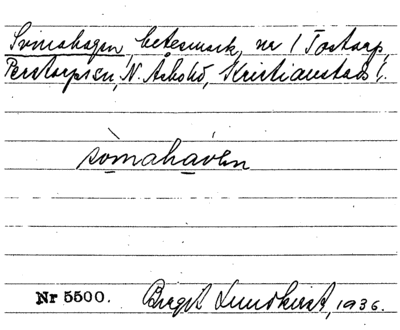 Svinahagen, betesmark, nr 1 Tostarp,
Perstorps sn, N. Åsbohd, Kristianstads l.
sòmahávɘn
Nr 5500. Birgit Lundkvist, 1936.